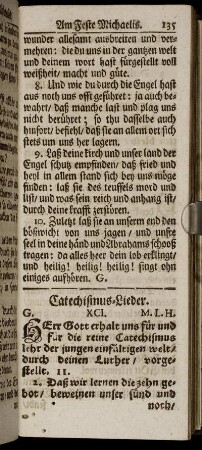 Am Feste Michaelis. 135
wunder allesamt ausbreiten und ver-
mehren: die du uns in der gantzen welt
und deinem wort hast fürgestellt voll
weißheit/ macht und güte.
8. Und wie du durch die Engel hast
aus noth uns offt geführet: ja auch be-
wahrt/ daß manche last und plag uns
nicht berühret; so thu dasselbe auch
hinfort/ befiehl/ daß sie an allem ort sich
stets um uns her lagern.
9. Laß deine kirch und unser land der
Engel schutz empfinden/ daß fried und
heyl in allem stand sich bey uns müge
finden: laß sie des teuffels mord und
list/ und was sein reich und anhang ist/
durch deine krafft zerstören.
10. Zuletzt laß sie an unserm end den
bößwicht von uns jagen/ und unsre
seel in deine händ und Abrahams schooß
tragen: da alles heer dein lob erklingt/
und heilig! heilig! heilig! singt ohn
einiges aufhören. G.
Catechismus-Lieder.
G. XCI. M. L. H.
HErr Gott erhalt uns für und
für die reine Catechismus
lehr der jungen einfältigen welt/
durch deinen Luther/ vorge-
stellt. 11.
2. Daß wir lernen die zehn ge-
bot/ beweinen unser sünd und
noth/